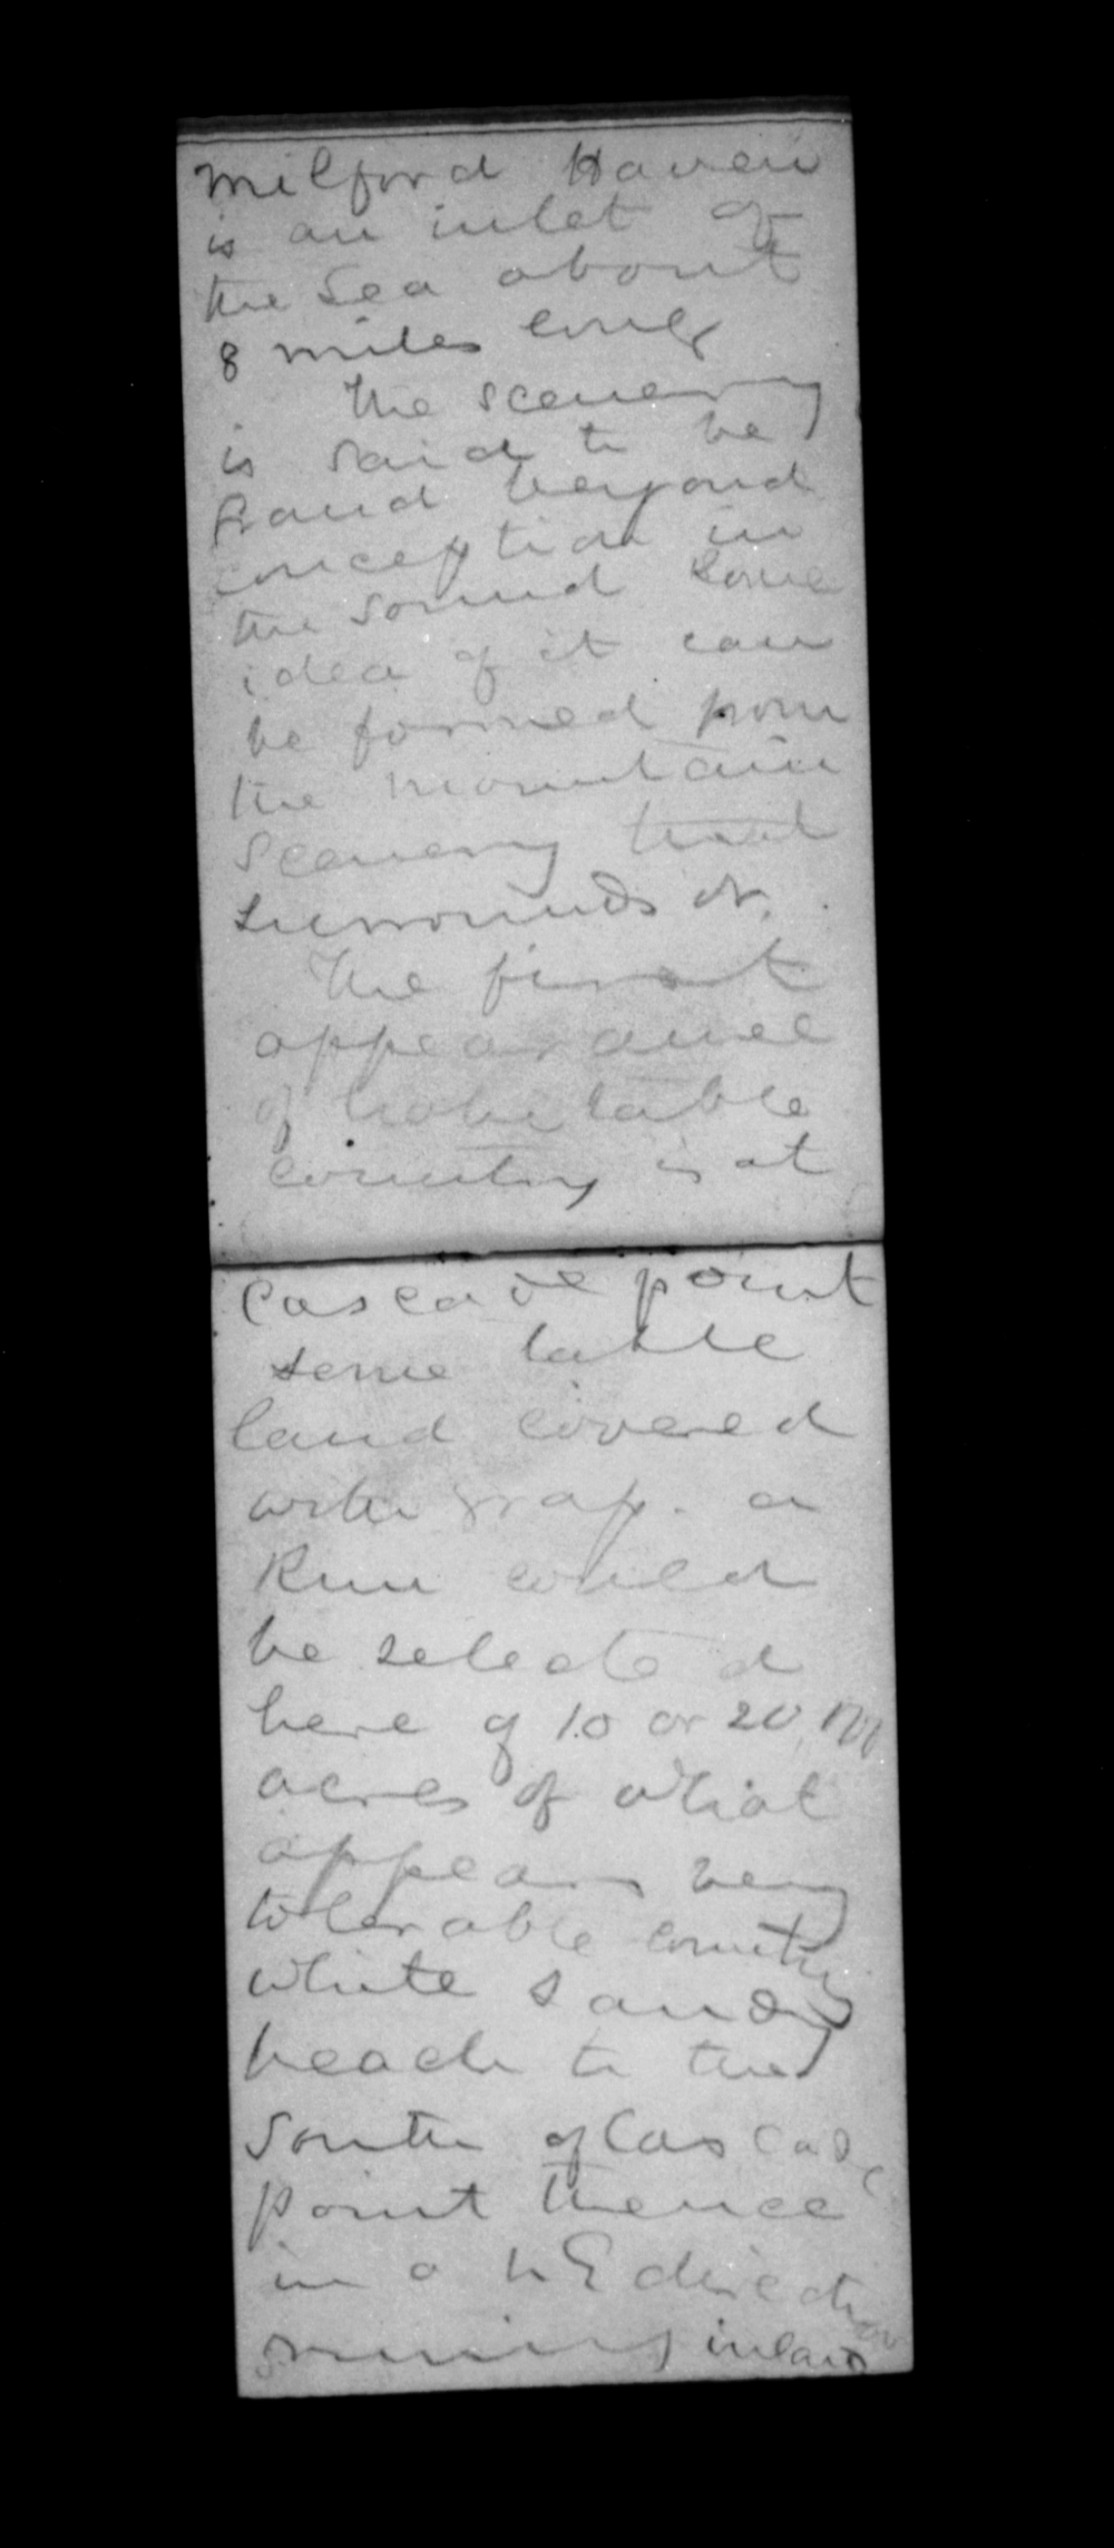 Milford Haven
is an inlet of
the Sea about
8 miles long
The scenery
is said to be
Grand beyond
conception in
the sound some
idea of it can
be formed from
the mountain
Scenery that
surrounds it.
The first
appearance
of habitable
country is at
Cascade point
some table
land covered
with grass. a
Run could
be selected
here of 10 or 20 M
acres of what
appears very
tolerable country
White sandy
beach to the
South of Cascade
point thence
in a NE direction
running inland